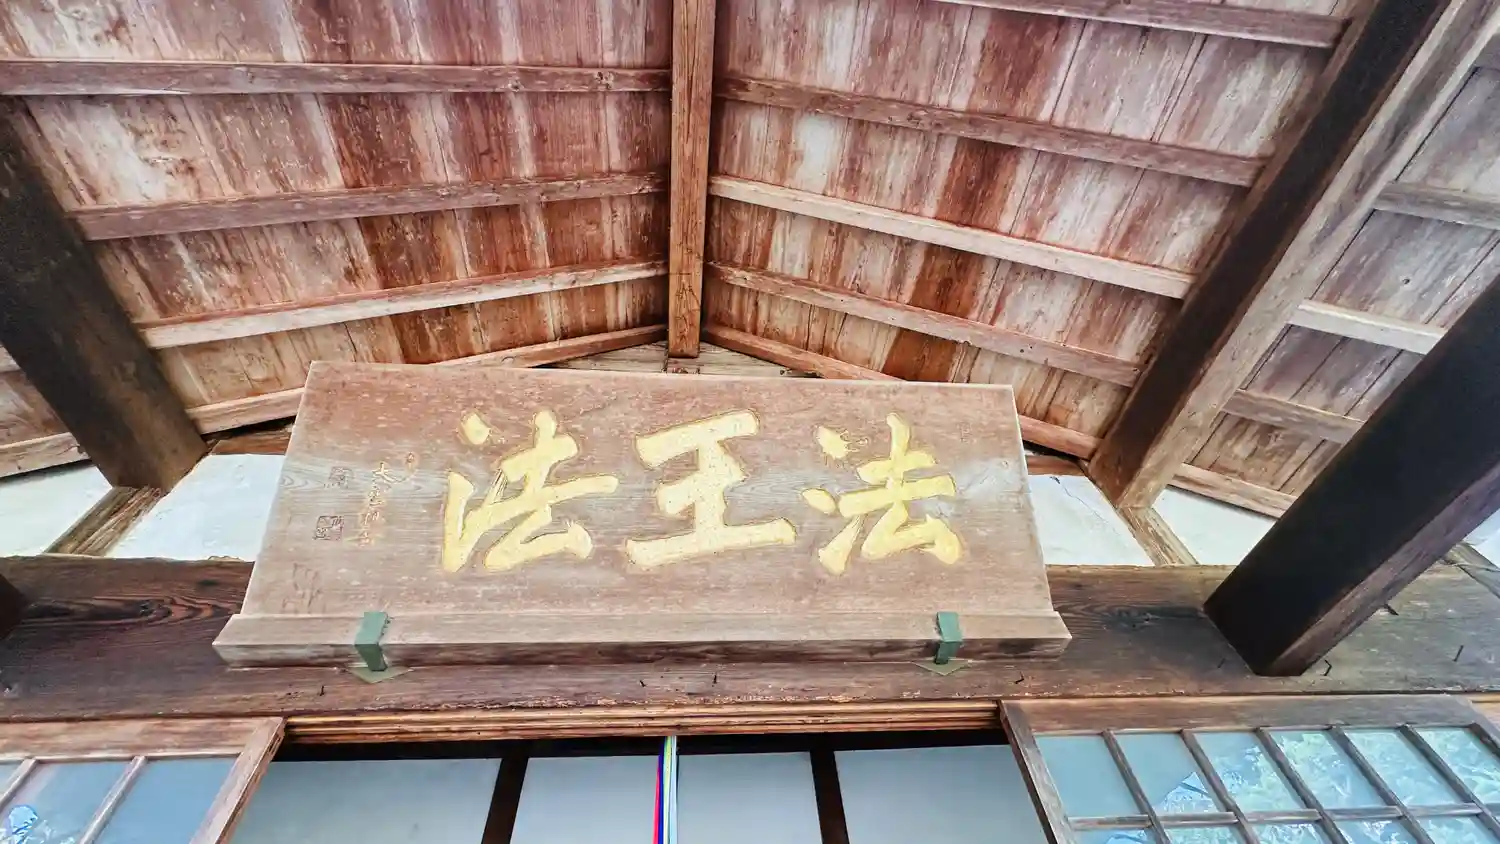 法王法